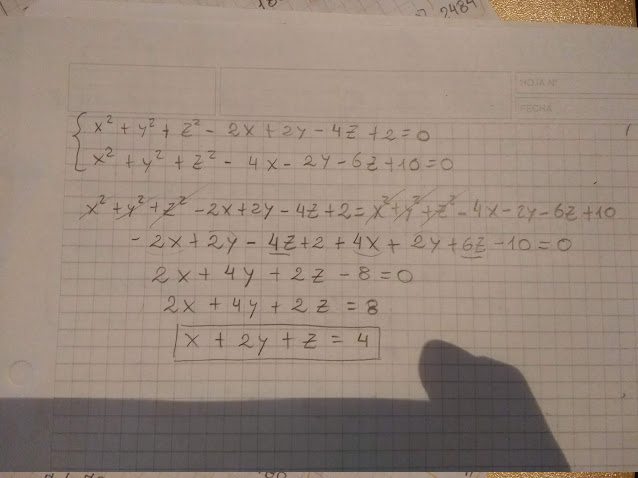 2484
HOJA Nº
FECHA
x² + y² + z² - 2x + 2y - 4z + 2 = 0
x² + y² + z² - 4x - 2y - 6z + 10 = 0
x² + y² + z² - 2x + 2y - 4z + 2 = x² + y² + z² - 4x - 2y - 6z + 10
- 2x + 2y - 4z + 2 + 4x + 2y + 6z - 10 = 0
2x + 4y + 2z - 8 = 0
2x + 4y + 2z = 8
x + 2y + z = 4